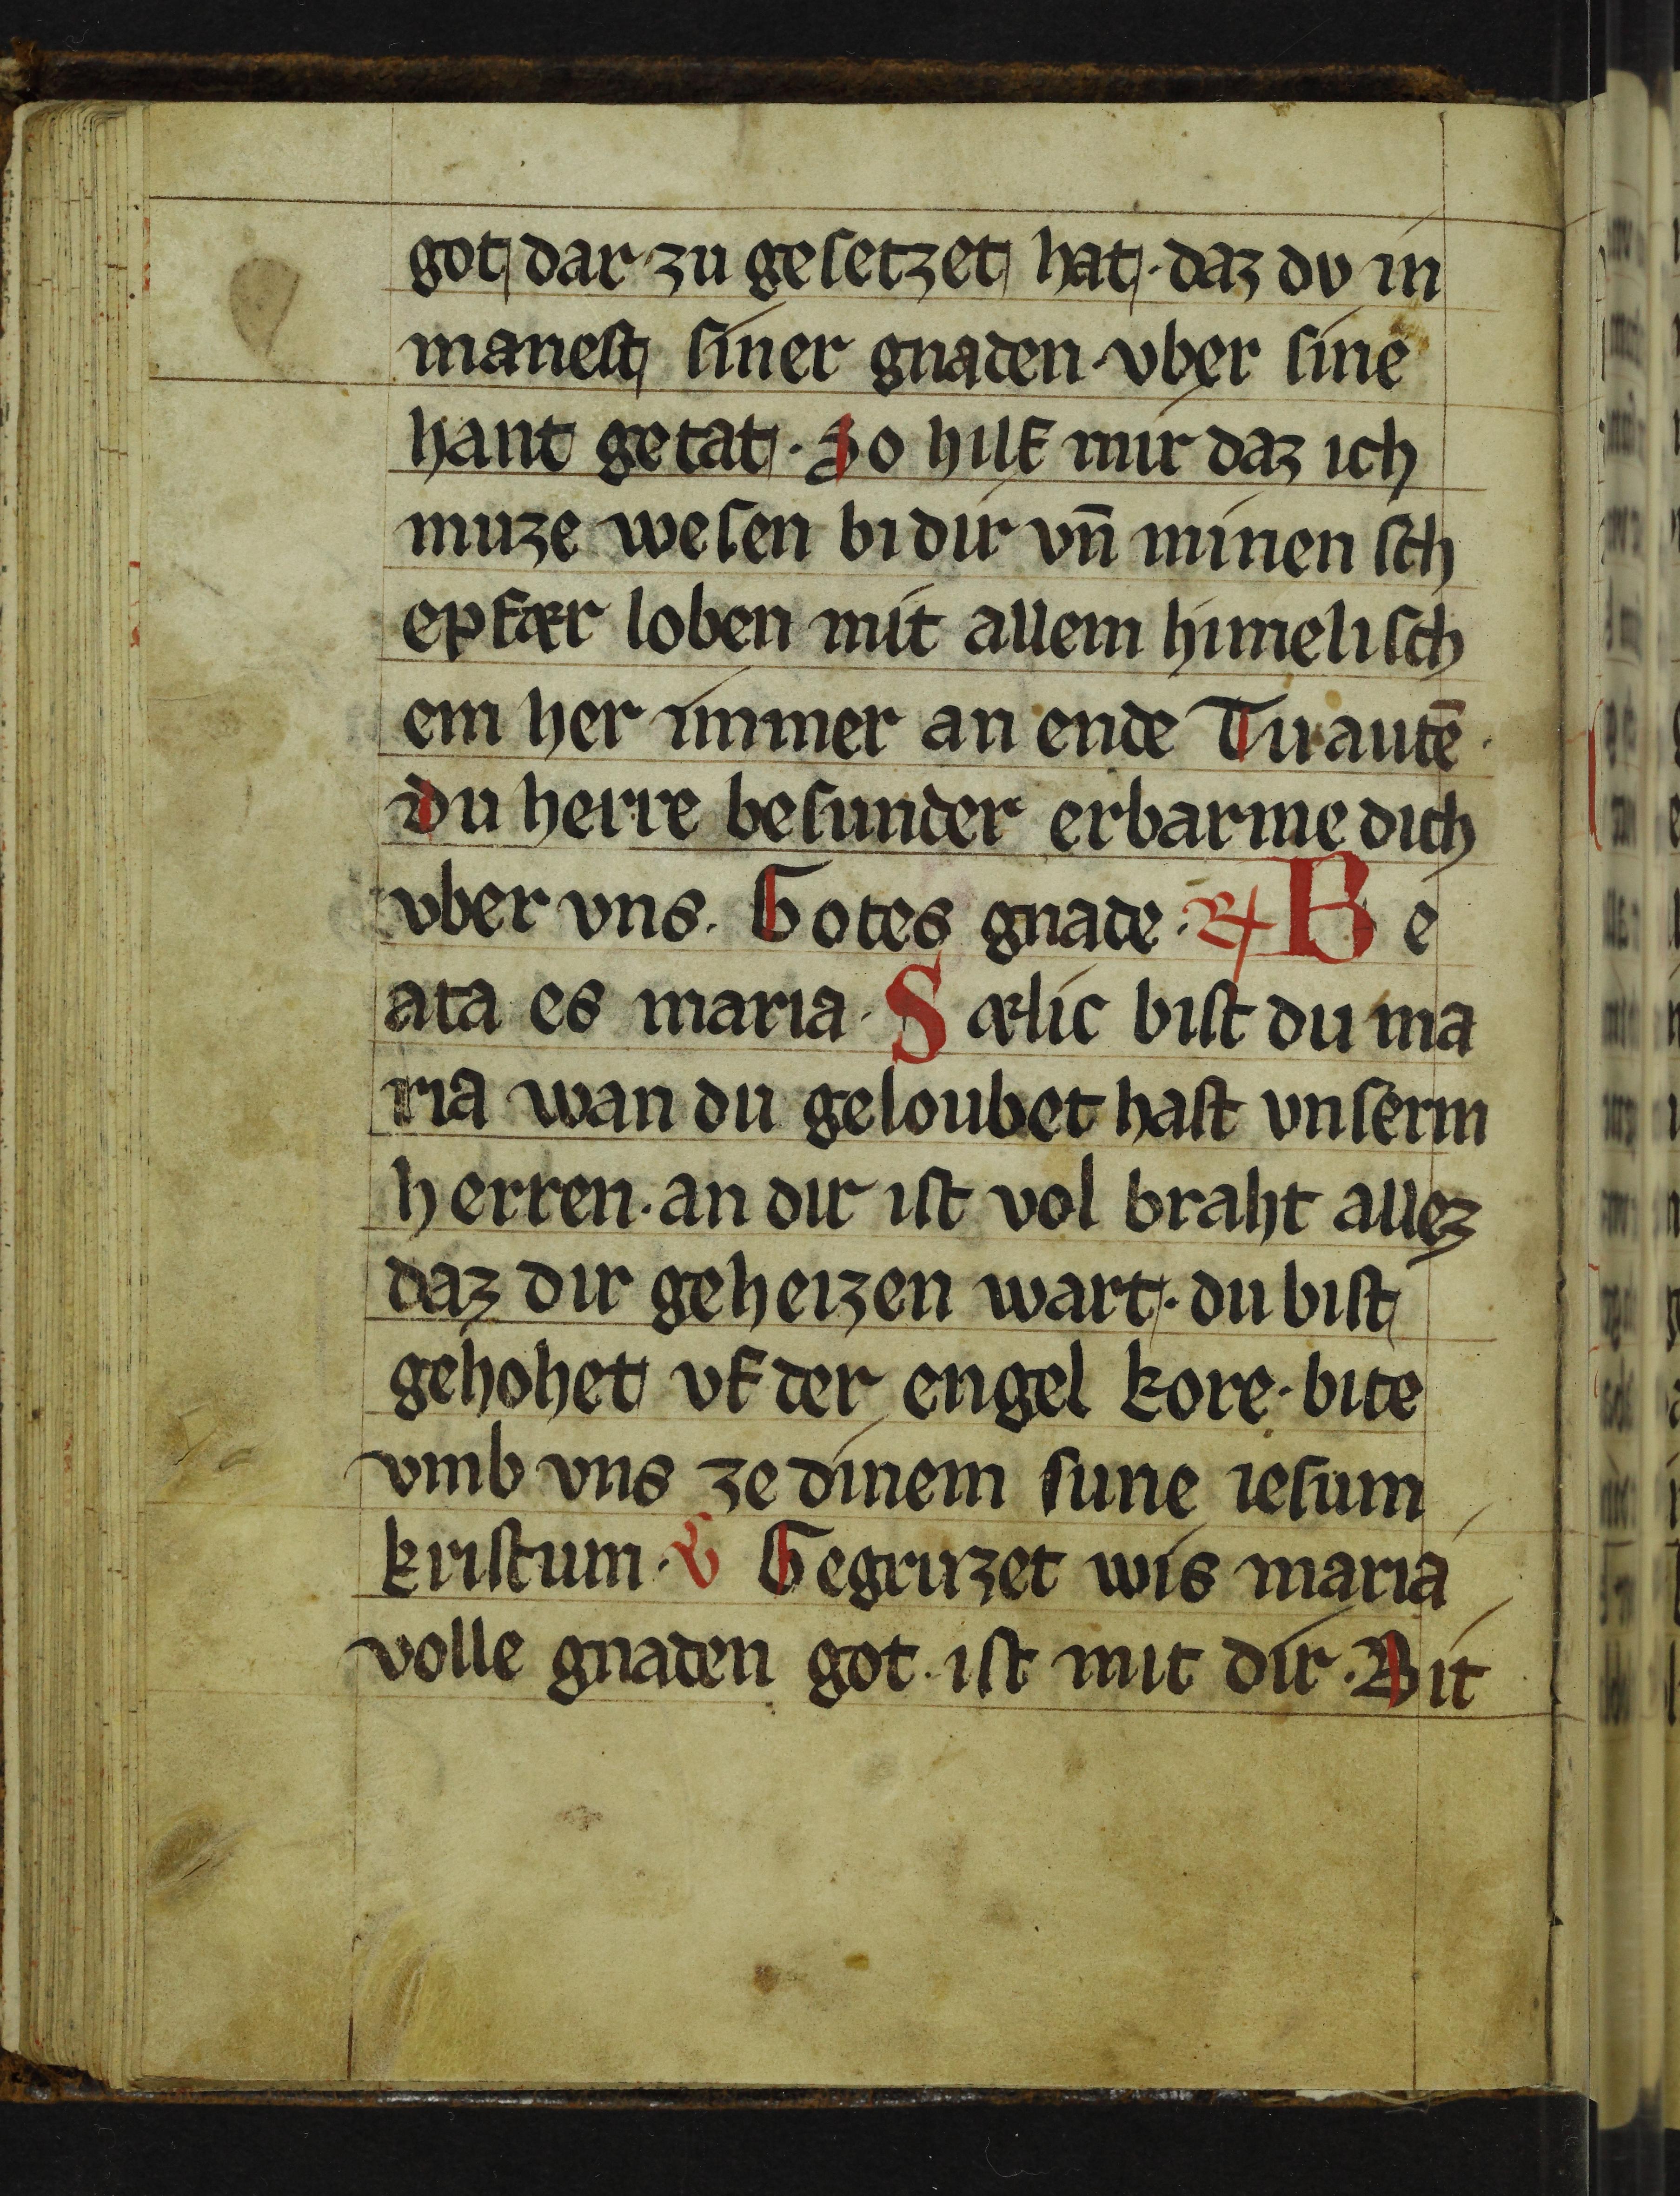 got dar zu gesetzet hat · daz dv in
manest siner gnaden · vber sine
hant getat · So hilf mir daz ich
muze wesen bi dir vn̄ minen sch
epfær loben mit allem himelisch
em her immer an ende Tu autē ·
Du herre besunder erbarme dich
vber vns. Gotes gnade · ℟ B e
ata es maria · S ælic bist du ma
ria wan du geloubet hast vnserm
herren · an dir ist vol braht allez
daz dir geheizen wart · du bist
gehohet vf der engel kore · bite
vmb vns ze dinem sune iesum
kristum · ℣ Gegruzet wis maria
volle gnaden got · ist mit dir · Bit